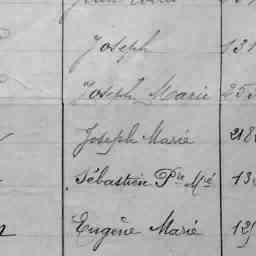 Joseph 131
Joseph Marie 253
Joseph Marie 218
Sébastien Pre Mié 13
Eugène Marie 129